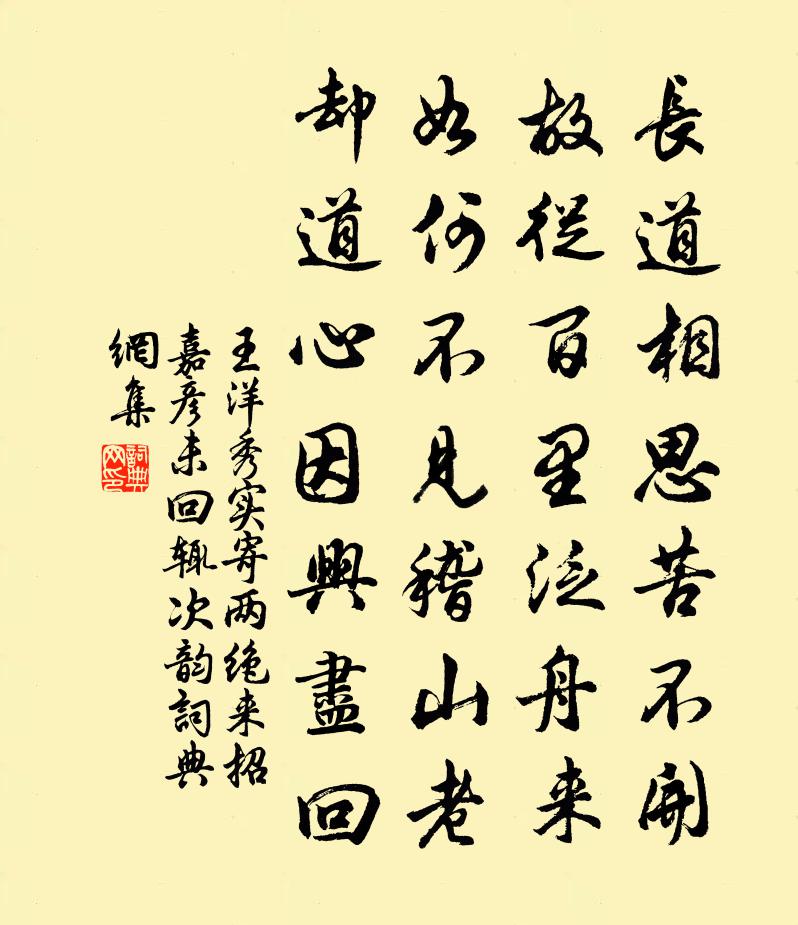 長道相思苦不開
故從百里泛舟来
如何不見稽山老
却道心因興盡回
王洋秀实寄两绝来招
嘉彦未回辄次韵詞典
網集
詞典網印